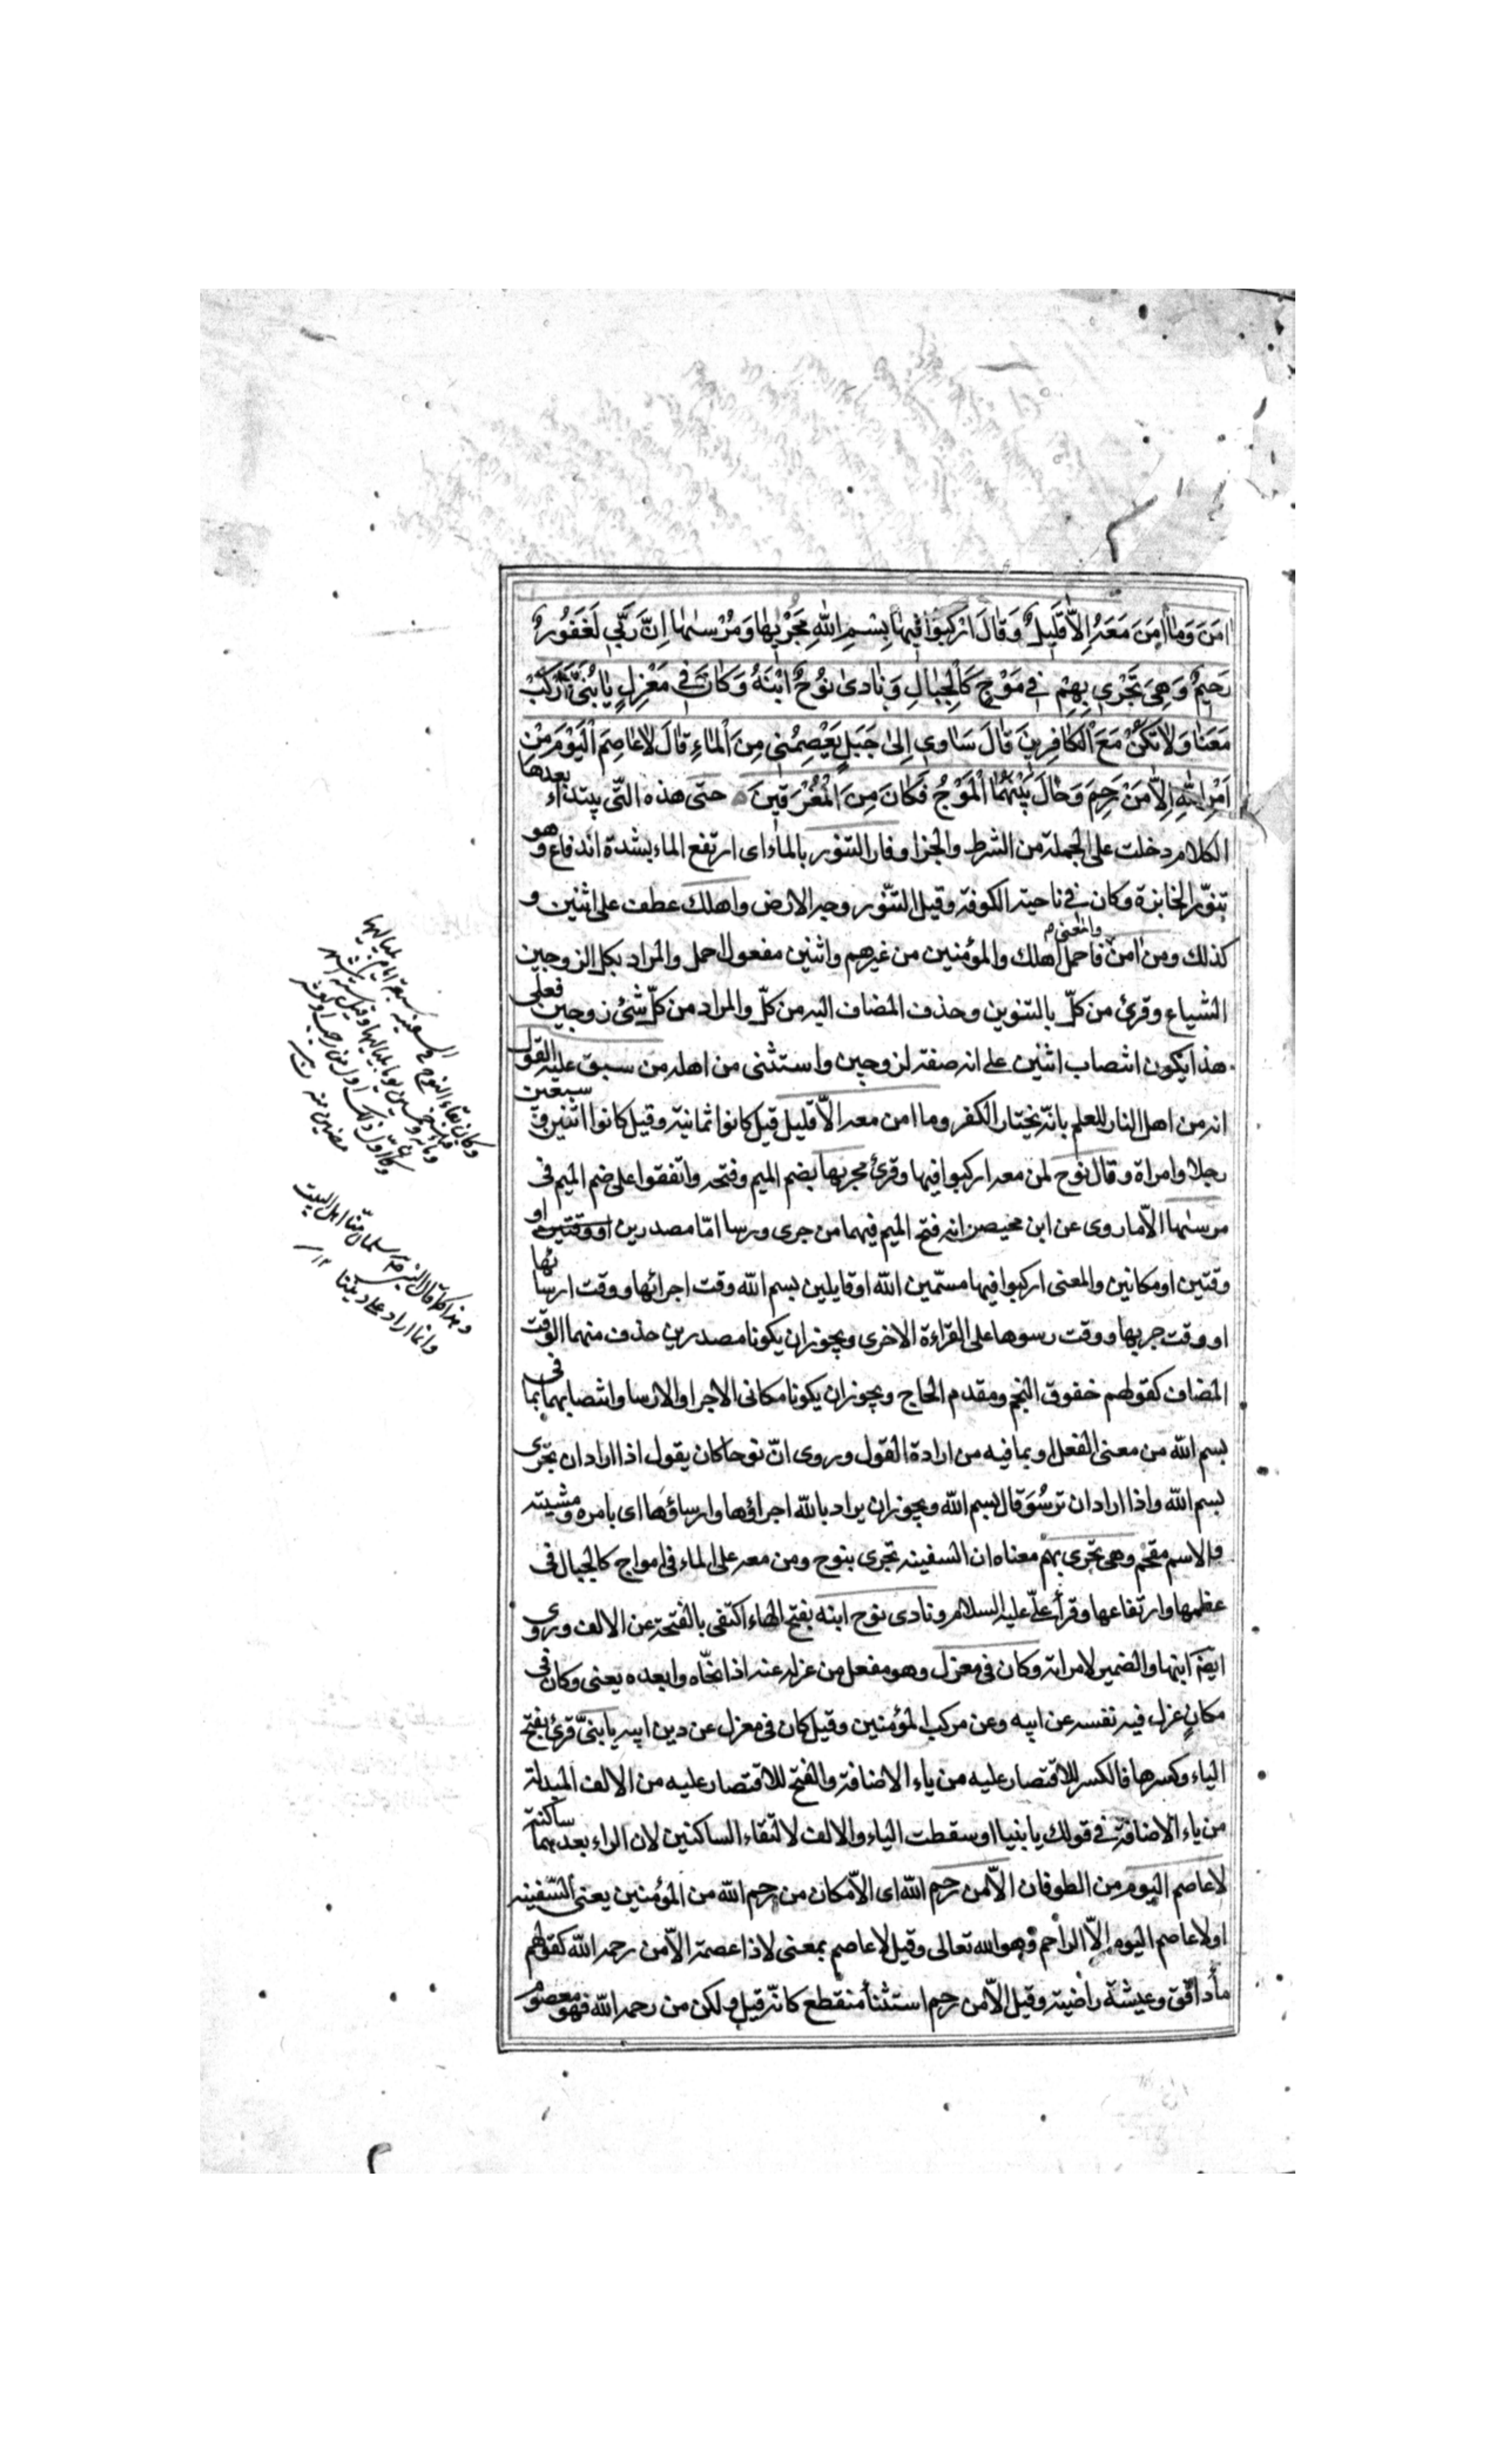 امَنَ وَمٰا امَنَ مَعَهُ اِلاّٰ قَلِيلٌ وَقٰالَ ارْكَبُوا فِيهٰا بِسْمِ اللهِ مَجْرٰيهٰا وَمُرْسٰيهٰا اِنَّ رَبّي لَغَفُورٌ
رَحيمٌ وَهِيَ تَجْري بِهِمْ في مَوْجٍ كَالْجِبٰالِ وَنٰادىٰ نوُحٌ ابْنَهُ وَكٰانَ في مَعْزِلٍ يٰا بُنَيَّ ارْكَبْ
مَعَنٰا وَلاٰ تَكُنْ مَعَ الْكٰافِرينَ قٰالَ سَاوي اِلىٰ جَبَلٍ يَعْصِمُني مِنَ الْمٰاءِ قٰالَ لاٰ عٰاصِمَ الْيَوْمَ مِنْ
اَمْرِ اللهِ اِلاّٰ مَنْ رَحِمَ وَحٰالَ بَيْنَهُمَا الْمَوْجُ فَكٰانَ مِنَ الْمُغْرَقينَ حتى هذه التّي يبتداء بعدها
الكلام دخلت على الجملة من الشرط والجزا وفار التنور بالماء اى ارتفع الماء بشدة اندفاع وهو
تنوّر الخابزة وكان في ناحية الكوفة وقيل التنّور وجه الارض واهلك عطف على اثنين و
كذلك ومن امن والمعنى فاحمل اهلك والمؤمنين من غيرهم واثنين مفعول احمل والمراد بكل الزوجين
الشياع وقرئ من كلّ بالتنوين وحذف المضاف اليه من كلّ والمراد من كلّ شئ زوجين فعلى
هذا يكون انتصاب اثنين على انه صفة لزوجين واستثنى من اهله من سبق عليه القول
انه من اهل النار للعلم بانّه يختار الكفر وما امن معه الاّ قليل قيل كانوا ثمانية وقيل كانوا اثنين و سبعين
رجلا وامراة وقال نوح لمن معه اركبوا فيها وقرئ مجريها بضم الميم وفتحه واتفقوا على ضم الميم فى
مرسىٰها الاّ ما روى عن ابن محيصن انه فتح الميم فيهما من جرى ورسا امّا مصدرين او وقتين او
وقتين او مكانين والمعنى اركبوا فيها مسمّين الله او قايلين بسم الله وقت اجرائها ووقت ارسائها
او وقت جريها ووقت رسوها على القراءة الاخرى ويجوز ان يكونا مصدرين حذف منهما الوقت
المضاف كقولهم خفوق النجم ومقدم الحاج ويجوز ان يكونا مكانى الاجرا والارسا وانتصابهما بما فى
بسم الله من معنى الفعل او بما فيه من ارادة القول وروى انّ نوحا كان يقول اذا اراد ان تجرى
بسم الله واذا اراد ان ترسُوَ قال بسم الله ويجوز ان يراد بالله اجراؤها وارساؤها اى بامره ومشيته
والاسم مقحم وهى تجرى بهم معناه ان السفينه تجرى بنوح ومن معه على الماء فى امواج كالجبال فى
عظمها وارتفاعها وقرأ علىّ عليه السلام ونادى نوح ابنه بفتح الهاء اكتفى بالفتحة عن الالف وروى
ايضا ابنها والضمير لامراته وكان فى معزل وهو مفعل من عزله عنه اذا نحّاه وابعده يعنى وكان فى
مكانٍ عزل فيه نفسه عن ابيه وعن مركب المؤمنين وقيل كان فى معزل عن دين ابيه يا بنىّ قرئ بفتح
الياء وكسرها فالكسر للاقتصار عليه من ياء الاضافة والفتح للاقتصار عليه من الالف المبدلة
من ياء الاضافة في قولك يا بنيا او سقطت الياء والالف لالتقاء الساكنين لان الراء بعدهما ساكنة
لا عاصم اليوم من الطوفان الاّ من رحم الله اى الاّ مكان من رحم الله من المؤمنين يعنى السّفينه
او لا عاصم اليوم الاّ الراحم وهو الله تعالى وقيل لا عاصم بمعنى لا ذا عصمة الاّ من رحمه الله كقولهم
مأ دافق وعيشة راضية وقيل الاّ من رحم استثنأ منقطع كانّه قيل ولكن من رحمه الله فهو معصوم
وهذا كما قال النبى سلمان منّا اهل البيت
وانما اراد على ديننا ١٢